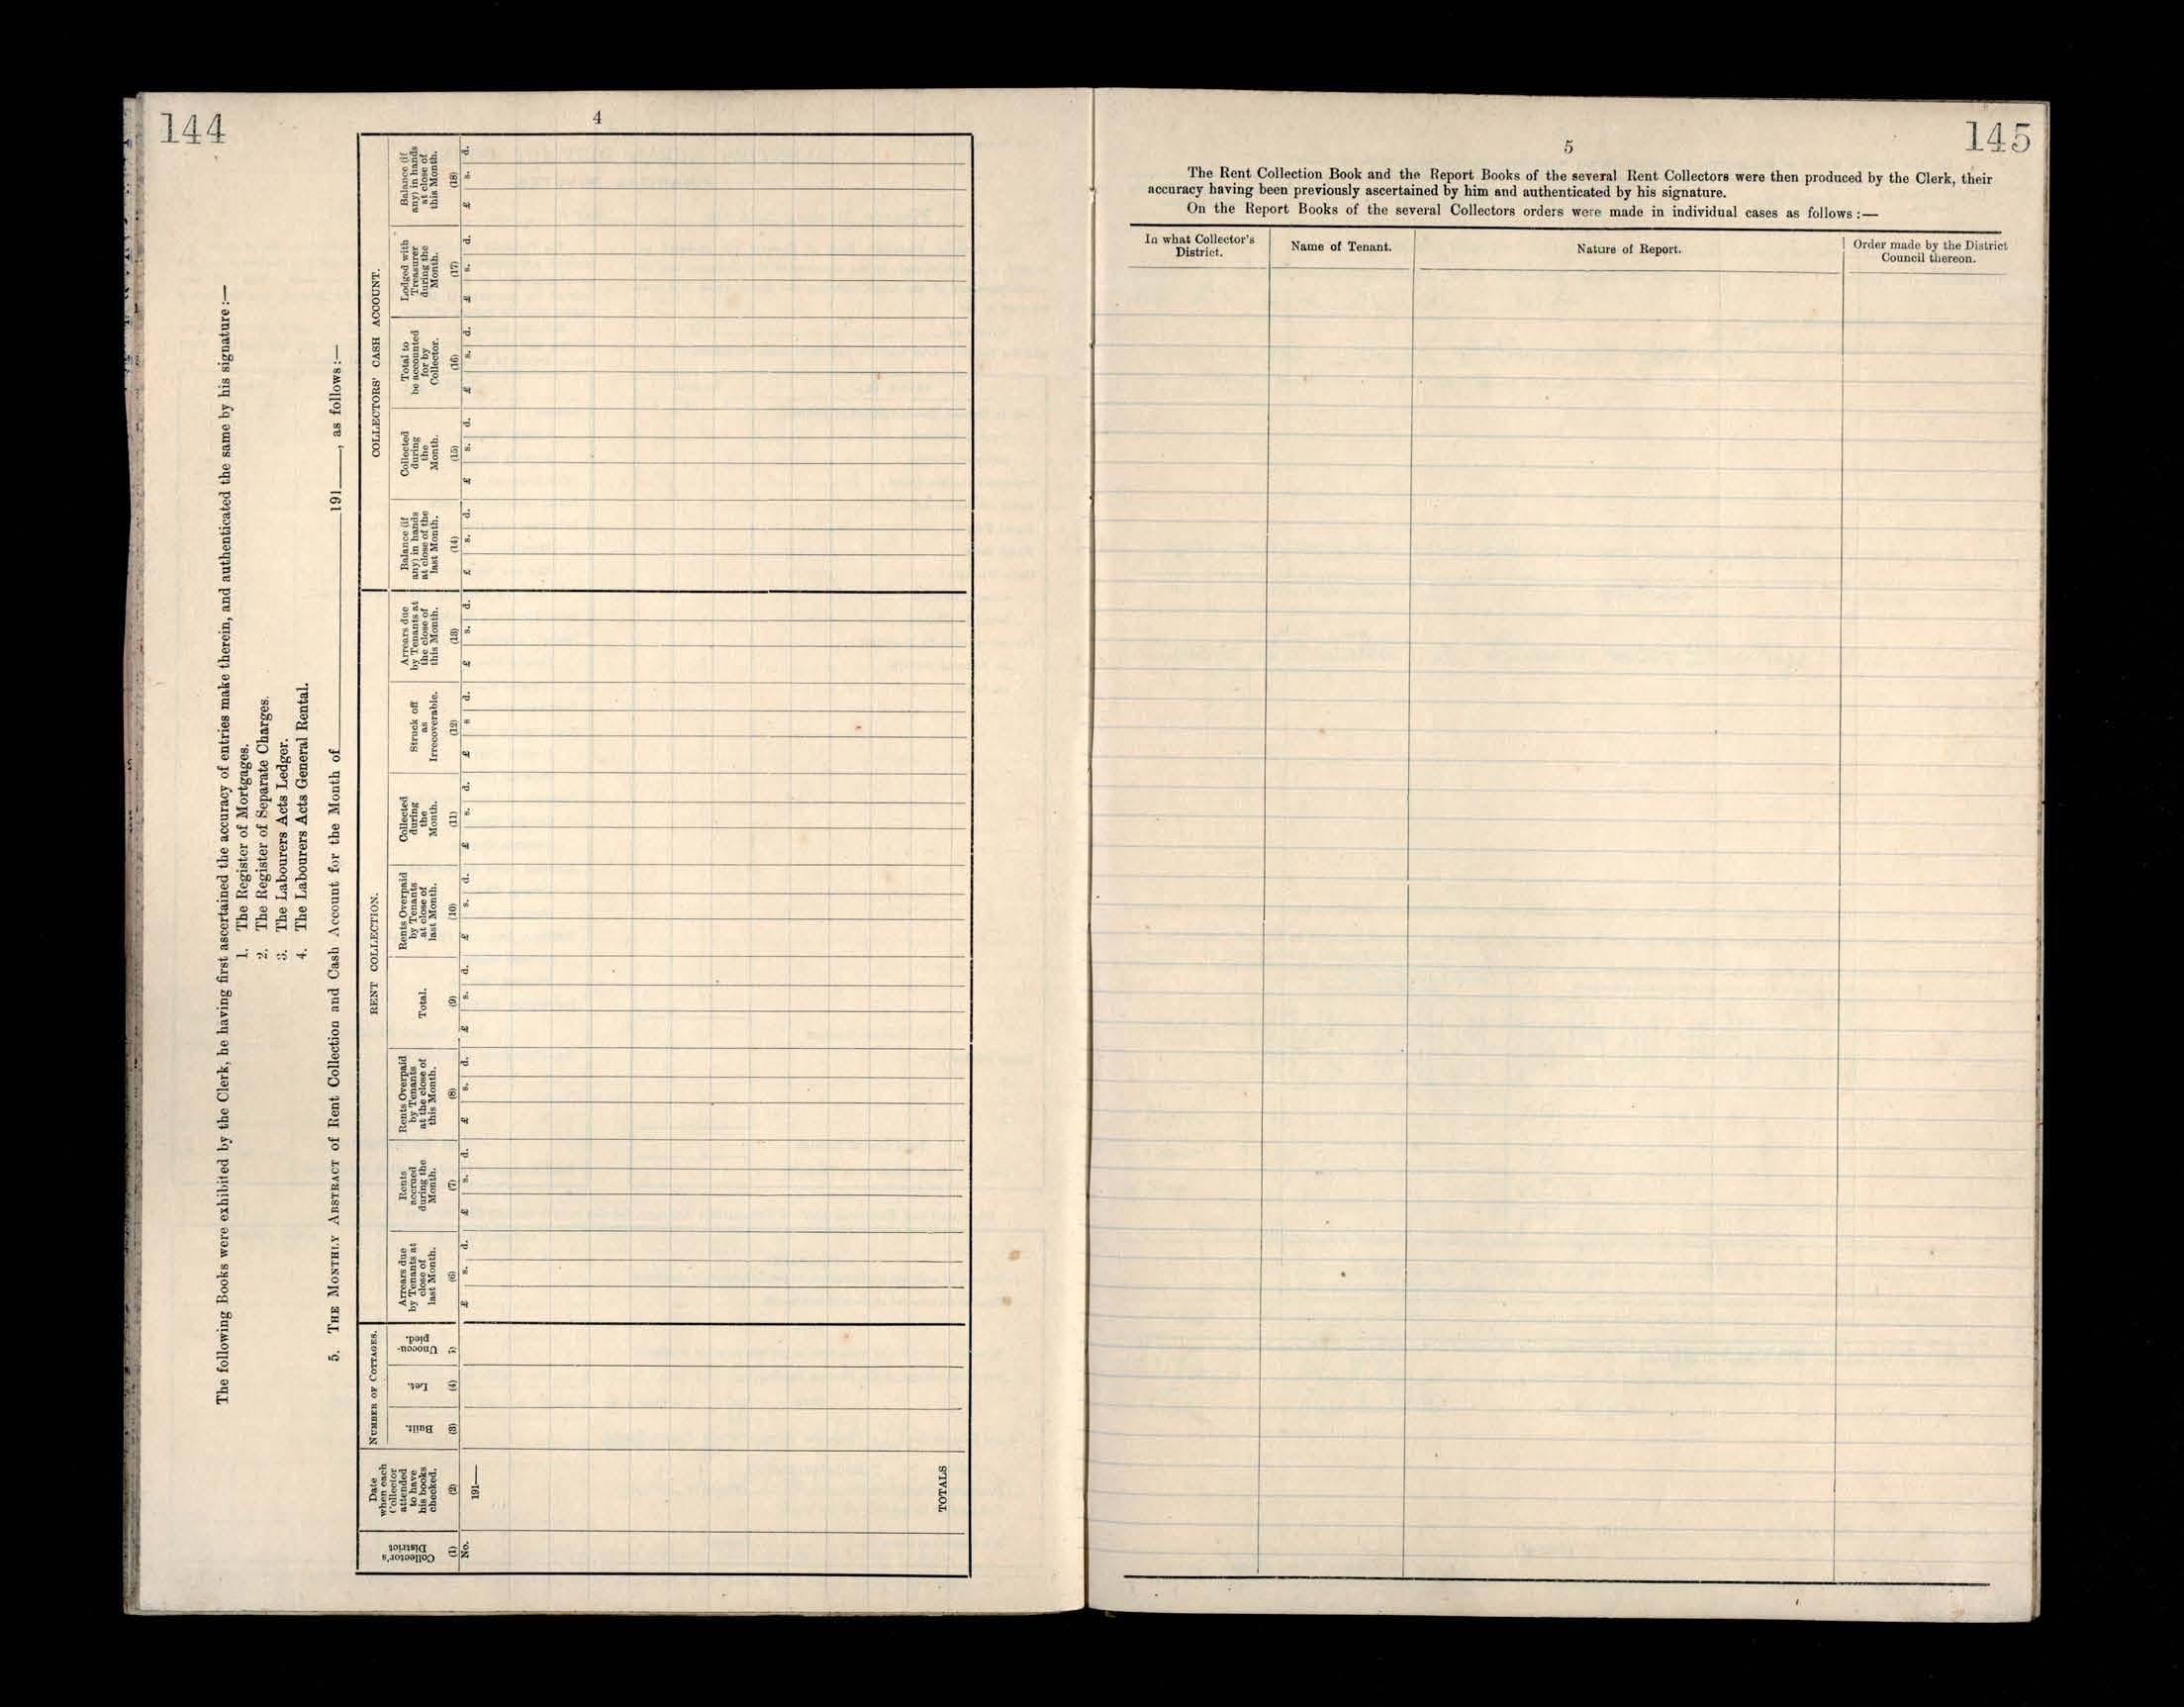 144
4
The following Books were exhibited by the Clerk, he having first ascertained the accuracy of entries make therein, and authenticated the same by his signature :—
1. The Register of Mortgages.
2. The Register of Separate Charges.
3. The Labourers Acts Ledger.
4. The Labourers Acts General Rental.
5. THE MONTHLY ABSTRACT of Rent Collection and Cash Account for the Month of 191 , as follows :—
Collector's
District
(1)
No.
Date
when each
Collector
attended
to have
his books
checked.
(2)
191—
TOTALS
NUMBER OF COTTAGES.
Built.
(3)
Let.
(4)
Unoccu-
pied.
(5)
RENT COLLECTION.
Arrears due
by Tenants at
close of
last Month.
(6)
£ s. d.
Rents
accrued
during the
Month.
(7)
£ s. d.
Rents Overpaid
by Tenants
at the close of
this Month.
(8)
£ s. d.
Total.
(9)
£ s. d.
Rents Overpaid
by Tenants
at close of
last Month.
(10)
£ s. d.
Collected
during
the
Month.
(11)
£ s. d.
Struck off
as
Irrecoverable.
(12)
£ s d.
Arrears due
by Tenants at
the close of
this Month.
(13)
£ s. d.
COLLECTORS' CASH ACCOUNT.
Balance (if
any) in hands
at close of the
last Month.
(14)
£ s. d.
Collected
during
the
Month.
(15)
£ s. d.
Total to
be accounted
for by
Collector.
(16)
£ s. d.
Lodged with
Treasurer
during the
Month.
(17)
£ s. d.
Balance (if
any) in hands
at close of
this Month.
(18)
£ s. d.
145
5
The Rent Collection Book and the Report Books of the several Rent Collectors were then produced by the Clerk, their
accuracy having been previously ascertained by him and authenticated by his signature.
On the Report Books of the several Collectors orders were made in individual cases as follows :—
In what Collector's
District.
Name of Tenant.
Nature of Report.
Order made by the District
Council thereon.